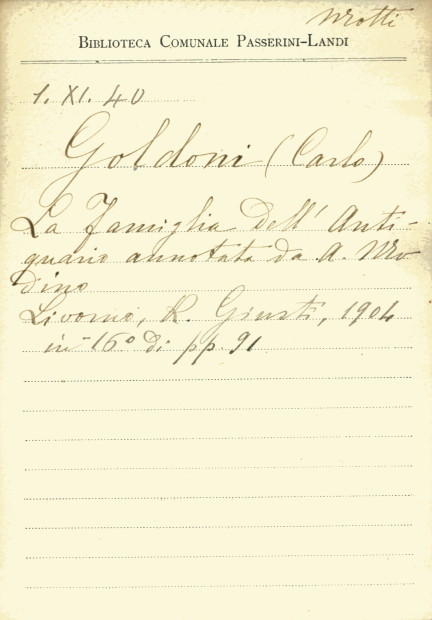 Motti
BIBLIOTECA COMUNALE PASSERINI-LANDI
1. XI. 40
Goldoni (Carlo)
La Famiglia dell' Anti-
quario annotata da A. Mo
dino
Livorno, R. Giusti, 1904
in-16° di pp. 91